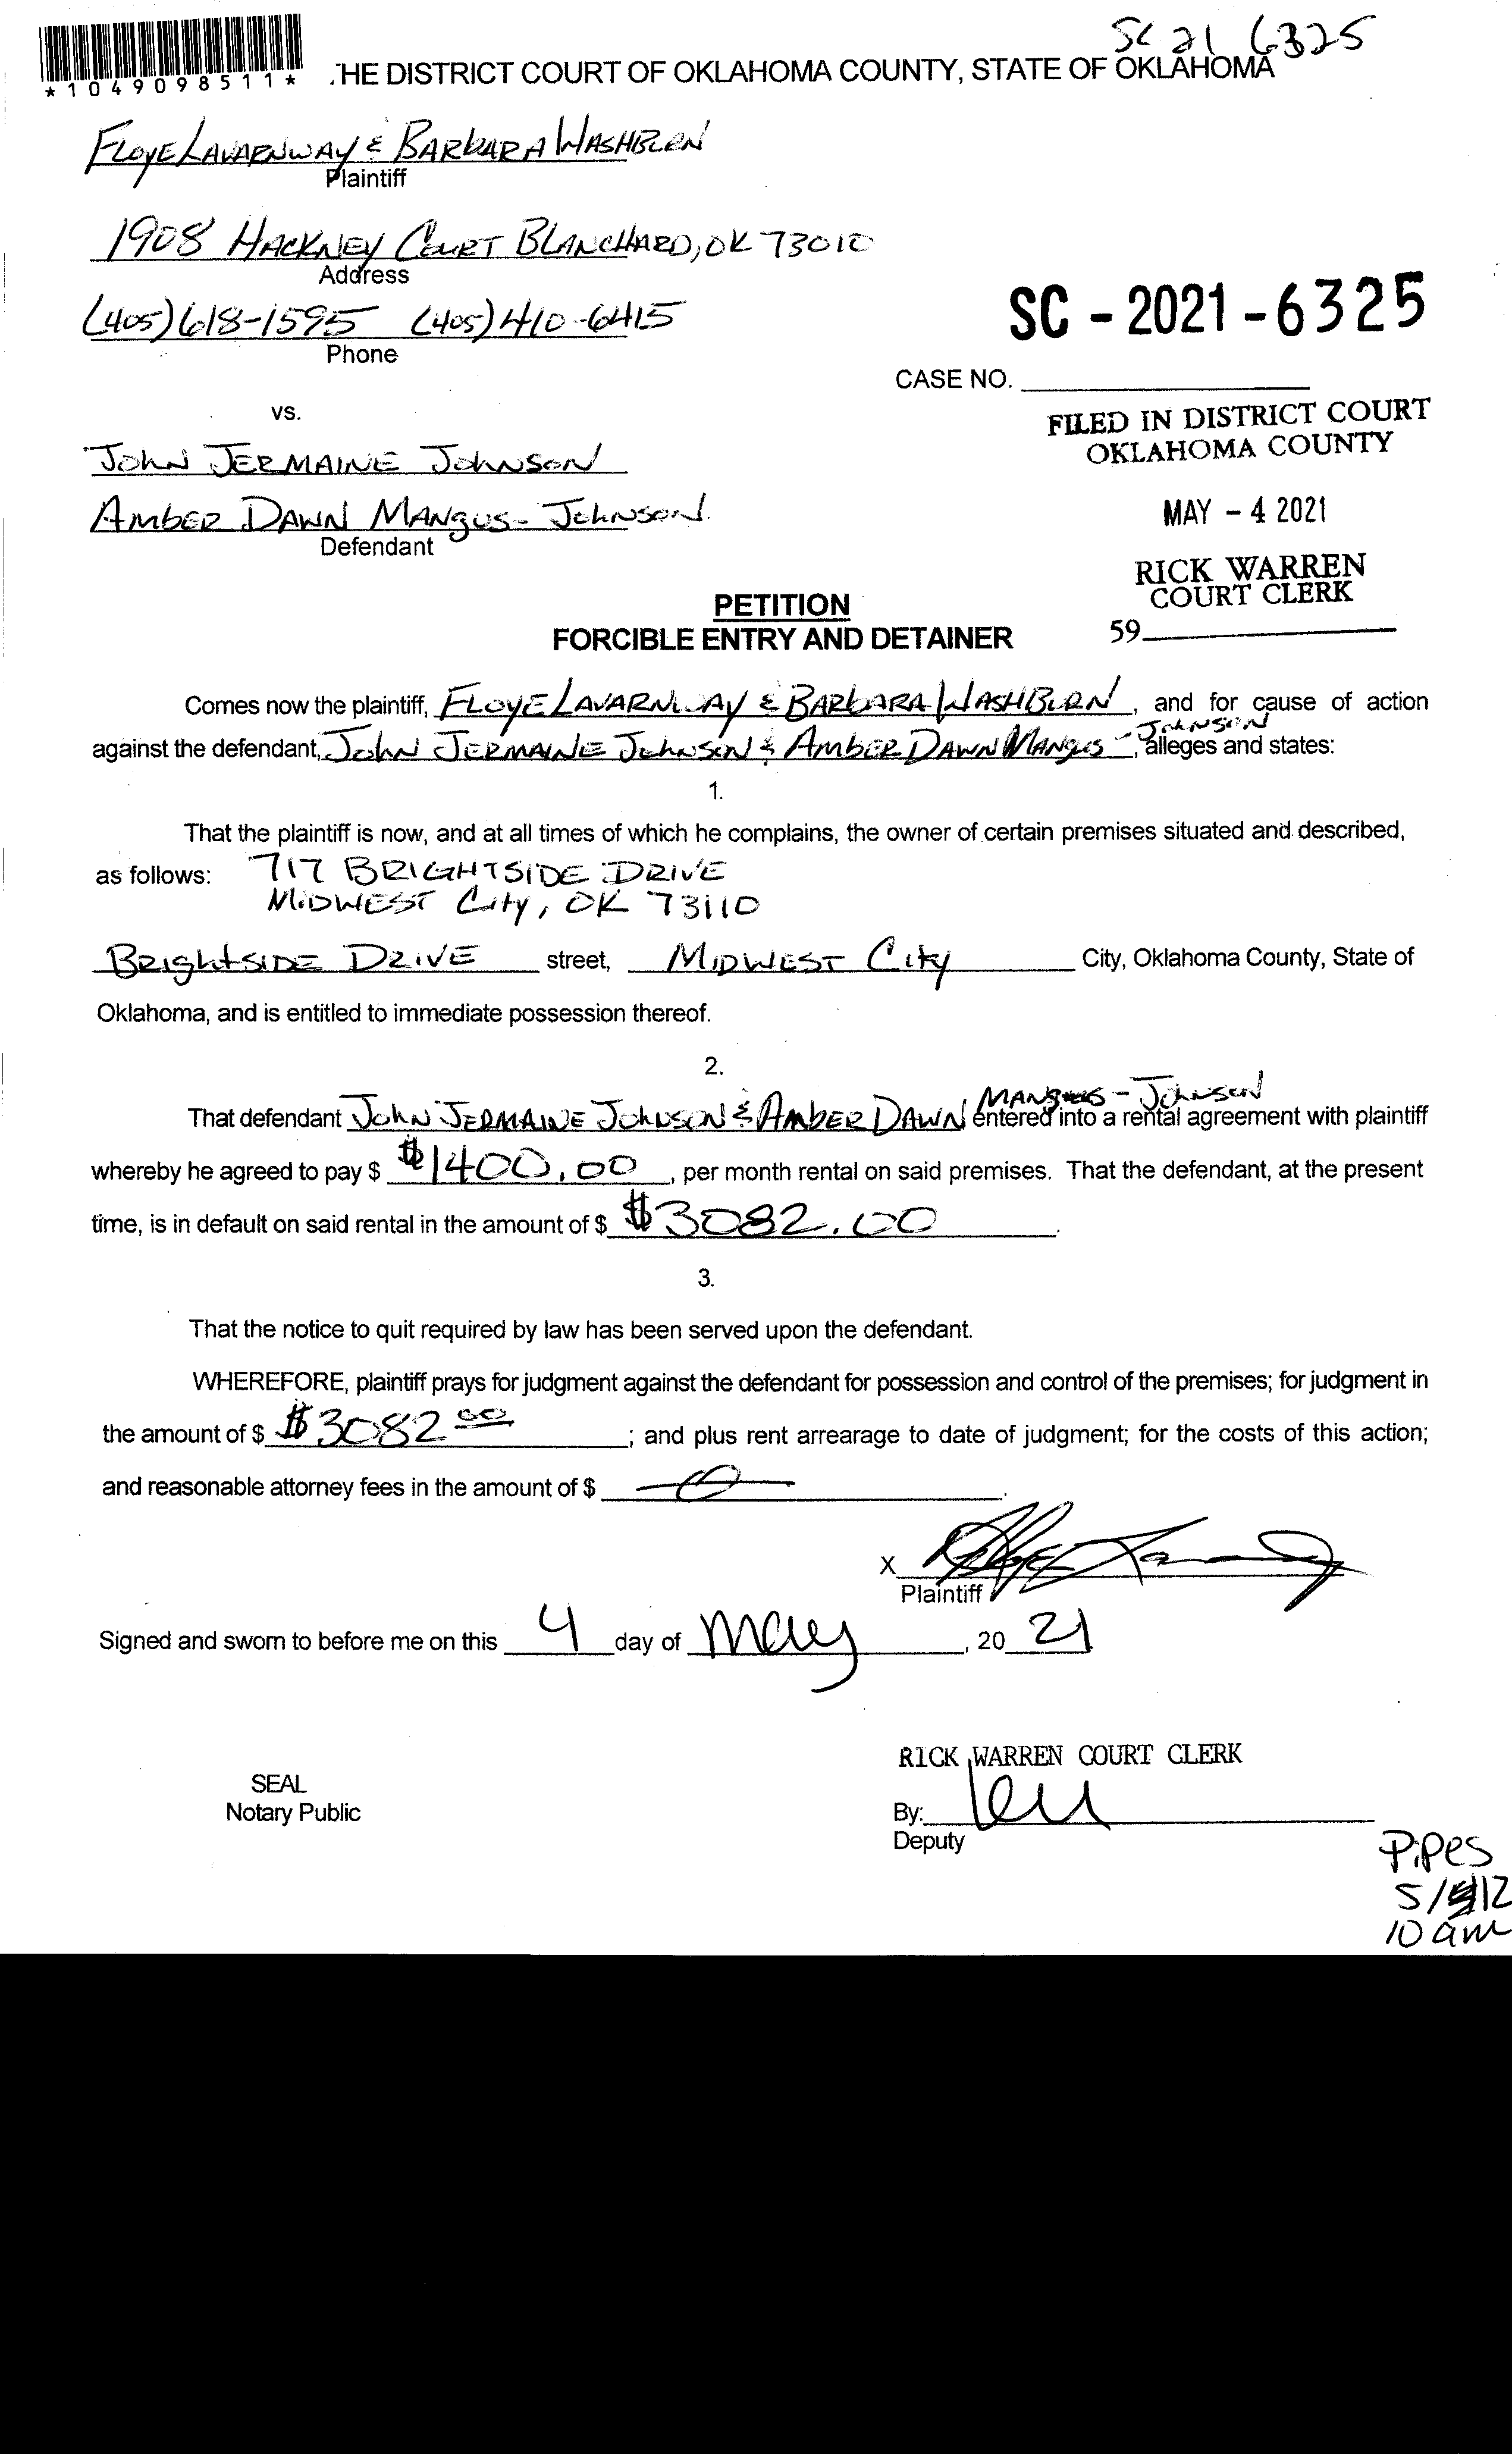 SC 21 6325
*1049098511*
THE DISTRICT COURT OF OKLAHOMA COUNTY, STATE OF OKLAHOMA
FLOYE LAVARNWAY & BARBARA WASHBURN
Plaintiff
1908 HACKNEY COURT BLANCHARD, OK 73010
Address
(405) 618-1595 (405) 410-6415
Phone
SC - 2021 - 6325
CASE NO.
vs.
FILED IN DISTRICT COURT
OKLAHOMA COUNTY
JOHN JERMAINE JOHNSON
AMBER DAWN MANGUS-JOHNSON
Defendant
MAY - 4 2021
RICK WARREN
COURT CLERK
59
PETITION
FORCIBLE ENTRY AND DETAINER
Comes now the plaintiff, FLOYE LAVARNWAY & BARBARA WASHBURN, and for cause of action
against the defendant, JOHN JERMAINE JOHNSON & AMBER DAWN MANGUS-JOHNSON, alleges and states:
1.
That the plaintiff is now, and at all times of which he complains, the owner of certain premises situated and described,
as follows: 717 BRIGHTSIDE DRIVE
MIDWEST City, OK 73110
BRIGHTSIDE DRIVE street, MIDWEST City City, Oklahoma County, State of
Oklahoma, and is entitled to immediate possession thereof.
2.
That defendant JOHN JERMAINE JOHNSON & AMBER DAWN MANGUS-JOHNSON entered into a rental agreement with plaintiff
whereby he agreed to pay $ $1400.00, per month rental on said premises. That the defendant, at the present
time, is in default on said rental in the amount of $ $3082.00.
3.
That the notice to quit required by law has been served upon the defendant.
WHEREFORE, plaintiff prays for judgment against the defendant for possession and control of the premises; for judgment in
the amount of $ $3082 00; and plus rent arrearage to date of judgment; for the costs of this action;
and reasonable attorney fees in the amount of $ 0.
X
Plaintiff
Signed and sworn to before me on this 4 day of May, 20 21
RICK WARREN COURT CLERK
SEAL
Notary Public
By:
Deputy
Pipes
5/12
10 am